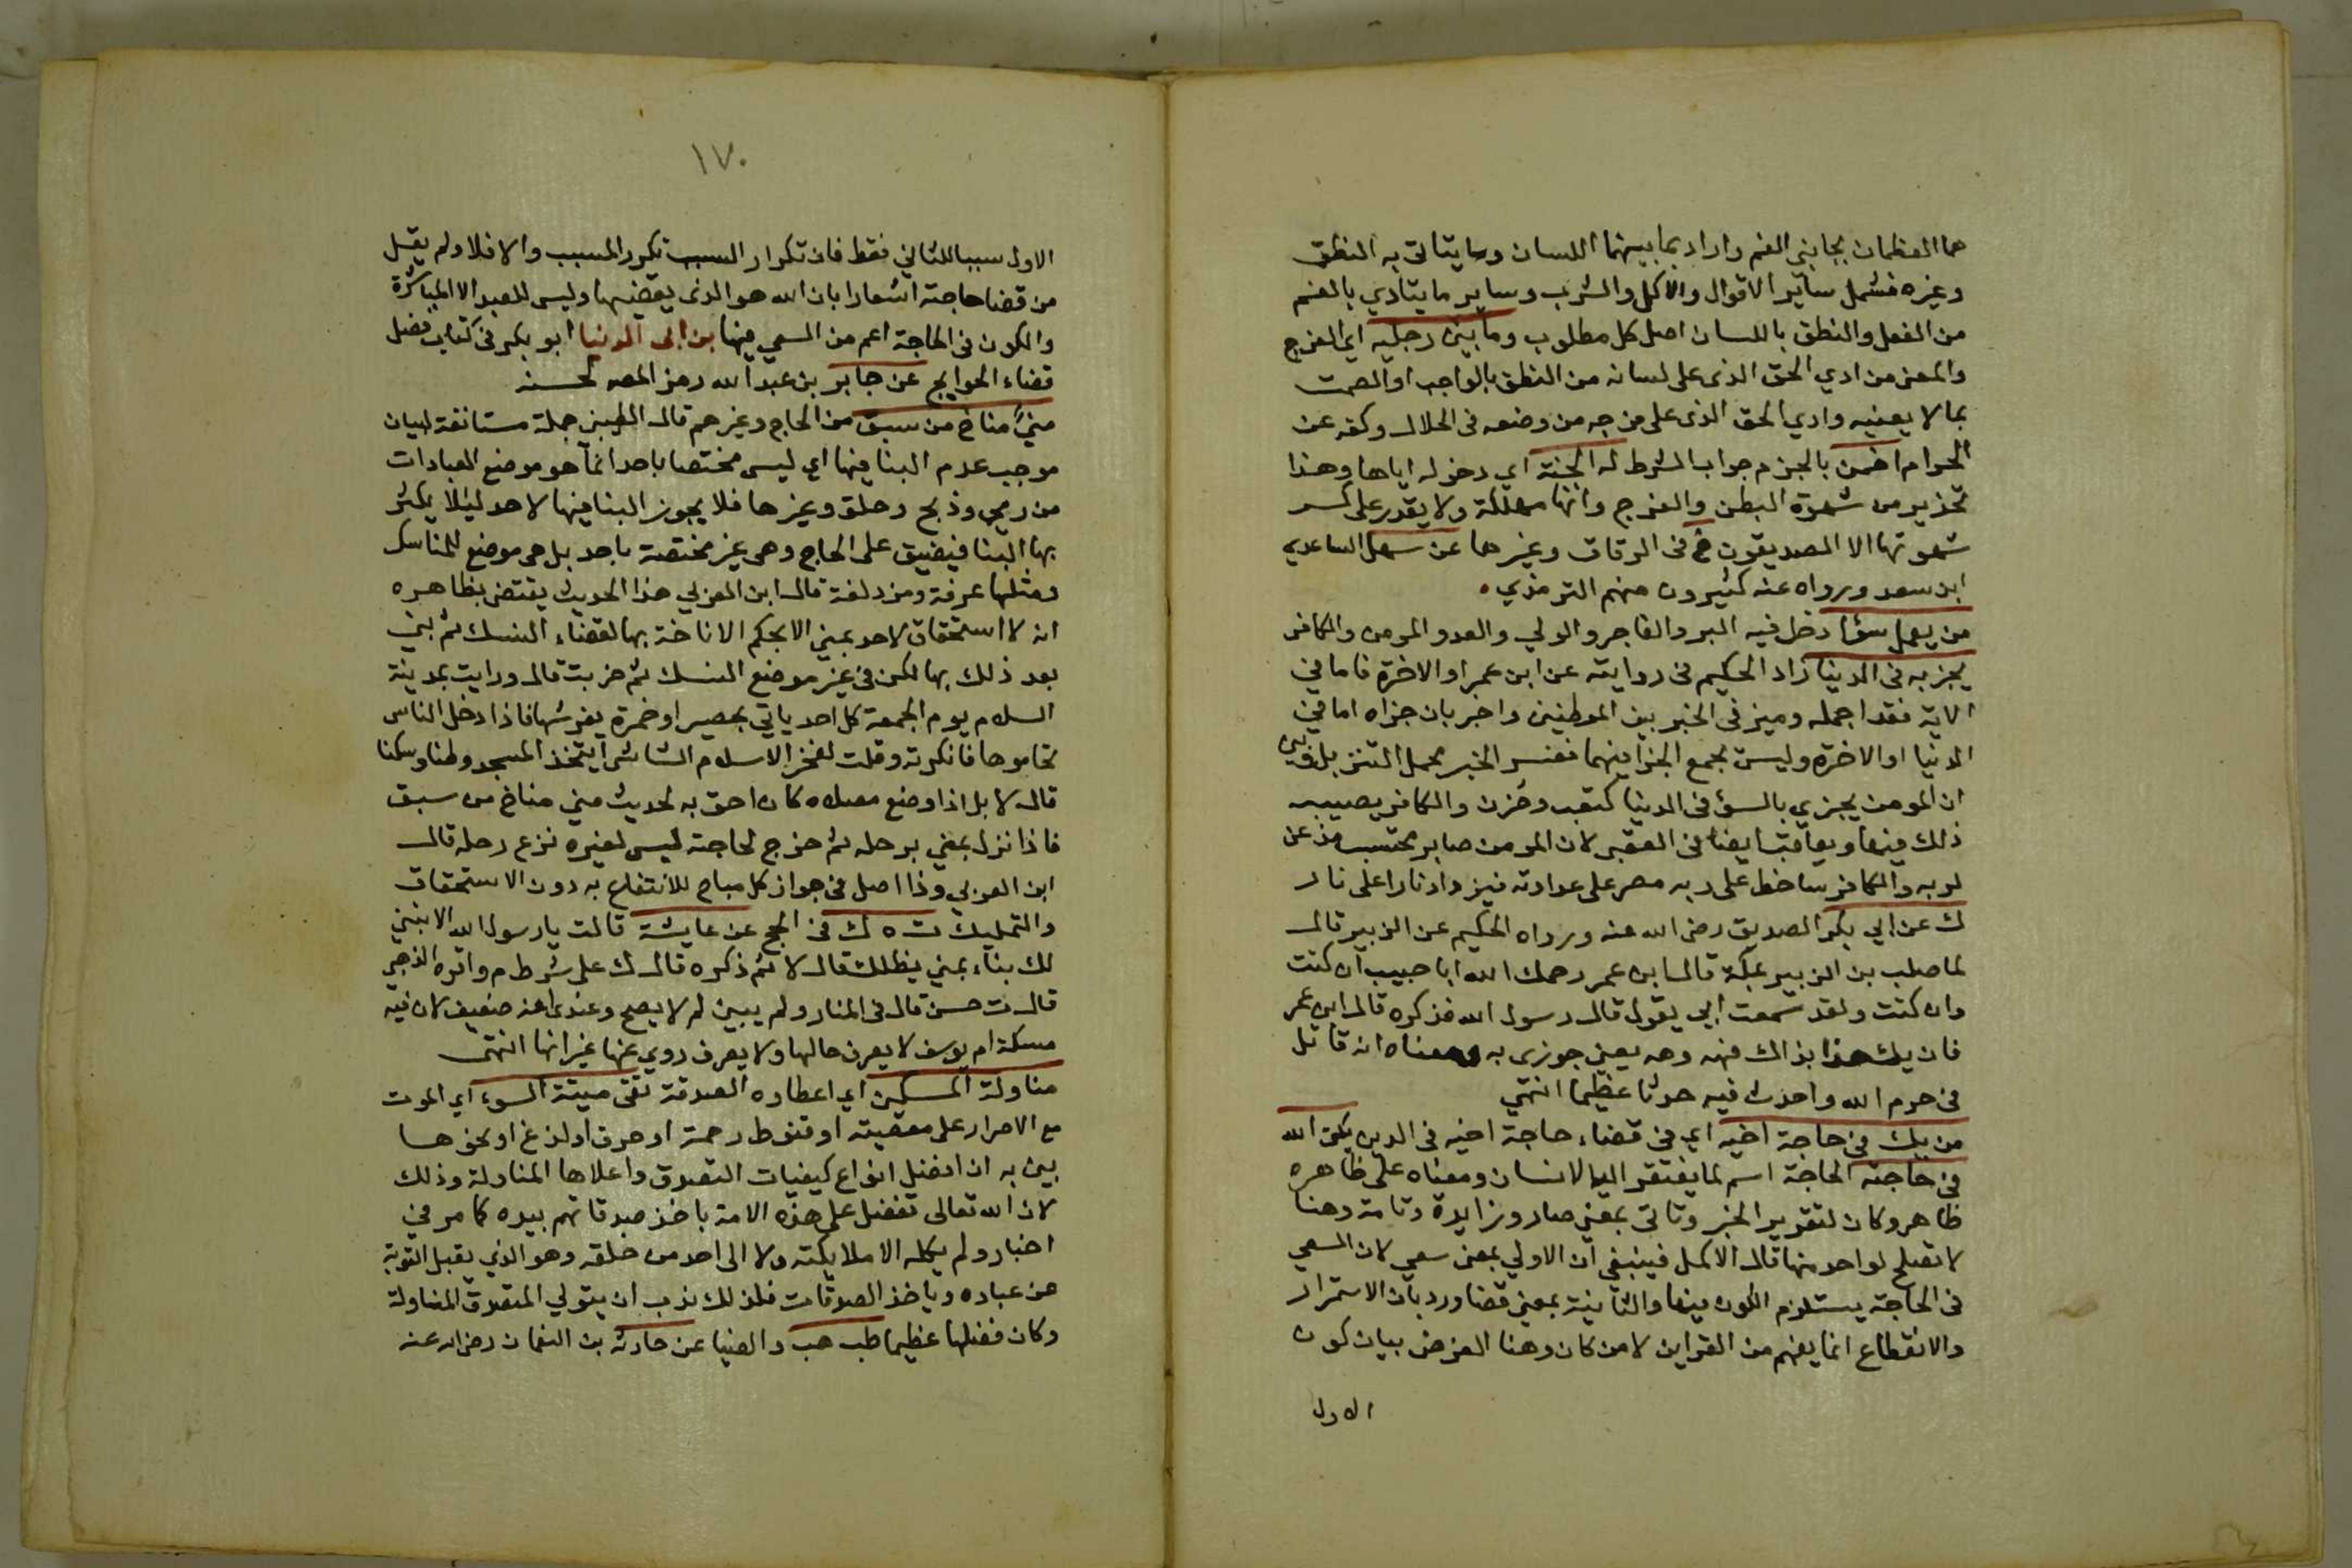 هما العظمان بجانبي الفم واراد بما بينهما اللسان وما يتاتى به النطق
وغيره فشمل ساير الاقوال والاكل والشرب وساير ما يتادي بالفم
من الفعل والنطق باللسان اصل كل مطلوب وما بين رجليه اي الفرج
والمعنى من ادي الحق الذى على لسانه من النطق بالواجب او الصمت
بما لا يعنيه وادي الحق الذى على فرجه من وضعه فى الحلال وكفه عن
الحرام اضمن بالجزم جواب الشرط له الجنة اي دخوله اياها وهذا
تحذير من شهوة البطن والفرج وانها مهلكة ولا يقدر على كسر
شهوتها الا الصديقون خ فى الرقاق وغيرها عن سهل الساعدي
ابن سعد ورواه عنه كثيرون منهم الترمذي
من يعمل سؤا دخل فيه البر والفاجر والولي والعدو والمومن والكافر
يجز به فى الدنيا زاد الحكيم فى روايته عن ابن عمر او الاخرة فاما في
الاية فقد اجمله وميز فى الخبر بين الموطنين واخبر بان جزاه اما في
الدنيا او الاخرة وليس بجمع الجزا فيهما ففسر الخبر مجمل التنزيل وبين
ان المومن يجزي بالسؤ فى الدنيا كتعب وحزن والكافر يصيبه
ذلك فيها ويعاقب ايضا فى العقبى لان المومن صابر محتسب مذعن
لربه والكافر ساخط على ربه مصر على عداوته فيزداد نارا على نار
ك عن ابي بكر الصديق رضى الله عنه ورواه الحكيم عن الزبير قال
لما صلب بن الزبير بمكة قال ابن عمر رحمك الله ابا حبيب ان كنت
وان كنت ولقد سمعت ابي يقول قال رسول الله فذكره قال ابن عمر
فان يك هذا بذاك فهه وهه يعني جوزى به ومعناه انه قاتل
فى حرم الله واحدث فيه حدثا عظيما انتهي
من يك في حاجة اخيه اي في قضاء حاجة اخيه فى الدين يكن الله
في حاجته الحاجة اسم لما يفتقر اليه الانسان ومعناه على ظاهره
ظاهر وكان لتقرير الخبر وتاتى بمعني صار وزايدة وتامة وهنا
لا تصلح لواحد منها قال الاكمل فينبغي ان الاولي بمعنى سعي لان السعي
فى الحاجة يستلزم الكون فيها والثانية بمعنى قضا ورد بان الاستمرار
والانقطاع انما يفهم من القراين لا من كان وهنا الغرض بيان كون
الاول
١٧٠
الاول سببا للثاني فقط فان تكرار السبب تكرر المسبب والا فلا ولم يقل
من قضا حاجته اشعارا بان الله هو الذى يقضيها وليس للعبد الا المباشرة
والكون فى الحاجة اعم من السعي فيها بن ابى الدنيا ابو بكر فى كتاب فضل
قضاء الحوايج عن جابر بن عبد الله رمز المصه لحسنه
منيً مناخ من سبق من الحاج وغيرهم قال الطيبي جملة مستانفة لبيان
موجب عدم البنا فيها اي ليس مختصا باحد انما هو موضع العبادات
من رمي وذبح وحلق وغيرها فلا يجوز البنا فيها لاحد ليلا يكثر
بها البنا فيضيق على الحاج وهى غير مختصة باحد بل هى موضع للمناسك
ومثلها عرفة ومزدلفة قال ابن العربي هذا الحديث يقتضى بظاهره
انه لا استحقاق لاحد بمني الا بحكم الاناخة بها لقضاء النسك ثم بني
بعد ذلك بها لكن فى غير موضع النسك ثم خربت قال ورايت بمدينة
السلام يوم الجمعة كل احد ياتي بحصير او خمرة يفرشها فاذا دخل الناس
تحاموها فانكرته وقلت لفخر الاسلام الشاشي ايتخذ المسجد وطنا وسكنا
قال لا بل اذا وضع مصلاه كان احق به لحديث مني مناخ من سبق
فاذا نزل بمني برحله ثم خرج لحاجته ليس لغيره نزع رحله قال
ابن العربي وذا اصل في جواز كل مباح للانتفاع به دون الاستحقاق
والتمليك ت ه ك فى الحج عن عايشة قالت يا رسول الله الا نبني
لك بناء بمني يظلك قال لا ثم ذكره قال ك على شرط م واقره الذهبي
قال ت حسن قال فى المنار ولم يبين لم لا يصح وعندى انه ضعيف لان فيه
مسكة ام يوسف لا يعرف حالها ولا يعرف روي عنها غير ابنها انتهى
مناولة المسكين اي اعطاوه الصدقة تقى ميتة السوء اي الموت
مع الاصرار على معصيته او قنوط رحمة او حرق او لدغ او نحوها
بين به ان افضل انواع كيفيات التصدق واعلاها المناولة وذلك
لان الله تعالى تفضل على هذه الامة باخذ صدقاتهم بيده كما مر في
اخبار ولم يكله الا ملايكته ولا الى احد من خلقه وهو الذي يقبل التوبة
عن عباده وياخذ الصدقات فلذلك ندب ان يتولي المتصدق المناولة
وكان فضلها عظيما طب هب والضيا عن حارثه بن النعمان رضى الله عنه